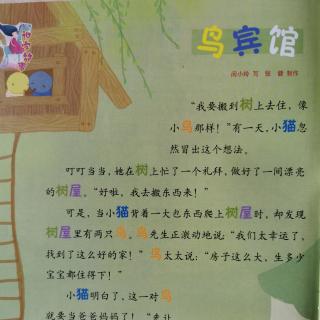 鸟宾馆
闵小玲 写 张 健 制作
“我要搬到树上去住，像
小鸟那样！”有一天，小猫忽
然冒出这个想法。
叮叮当当，她在树上忙了一个礼拜，做好了一间漂亮
的树屋。“好啦，我去搬东西来！”
可是，当小猫背着一大包东西爬上树屋时，却发现
树屋里有两只鸟。鸟先生正激动地说：“我们太幸运了，
找到了这么好的家！”鸟太太说：“房子这么大，生多少
宝宝都住得下！”
小猫明白了，这一对鸟
就要当爸爸妈妈了！“卖让